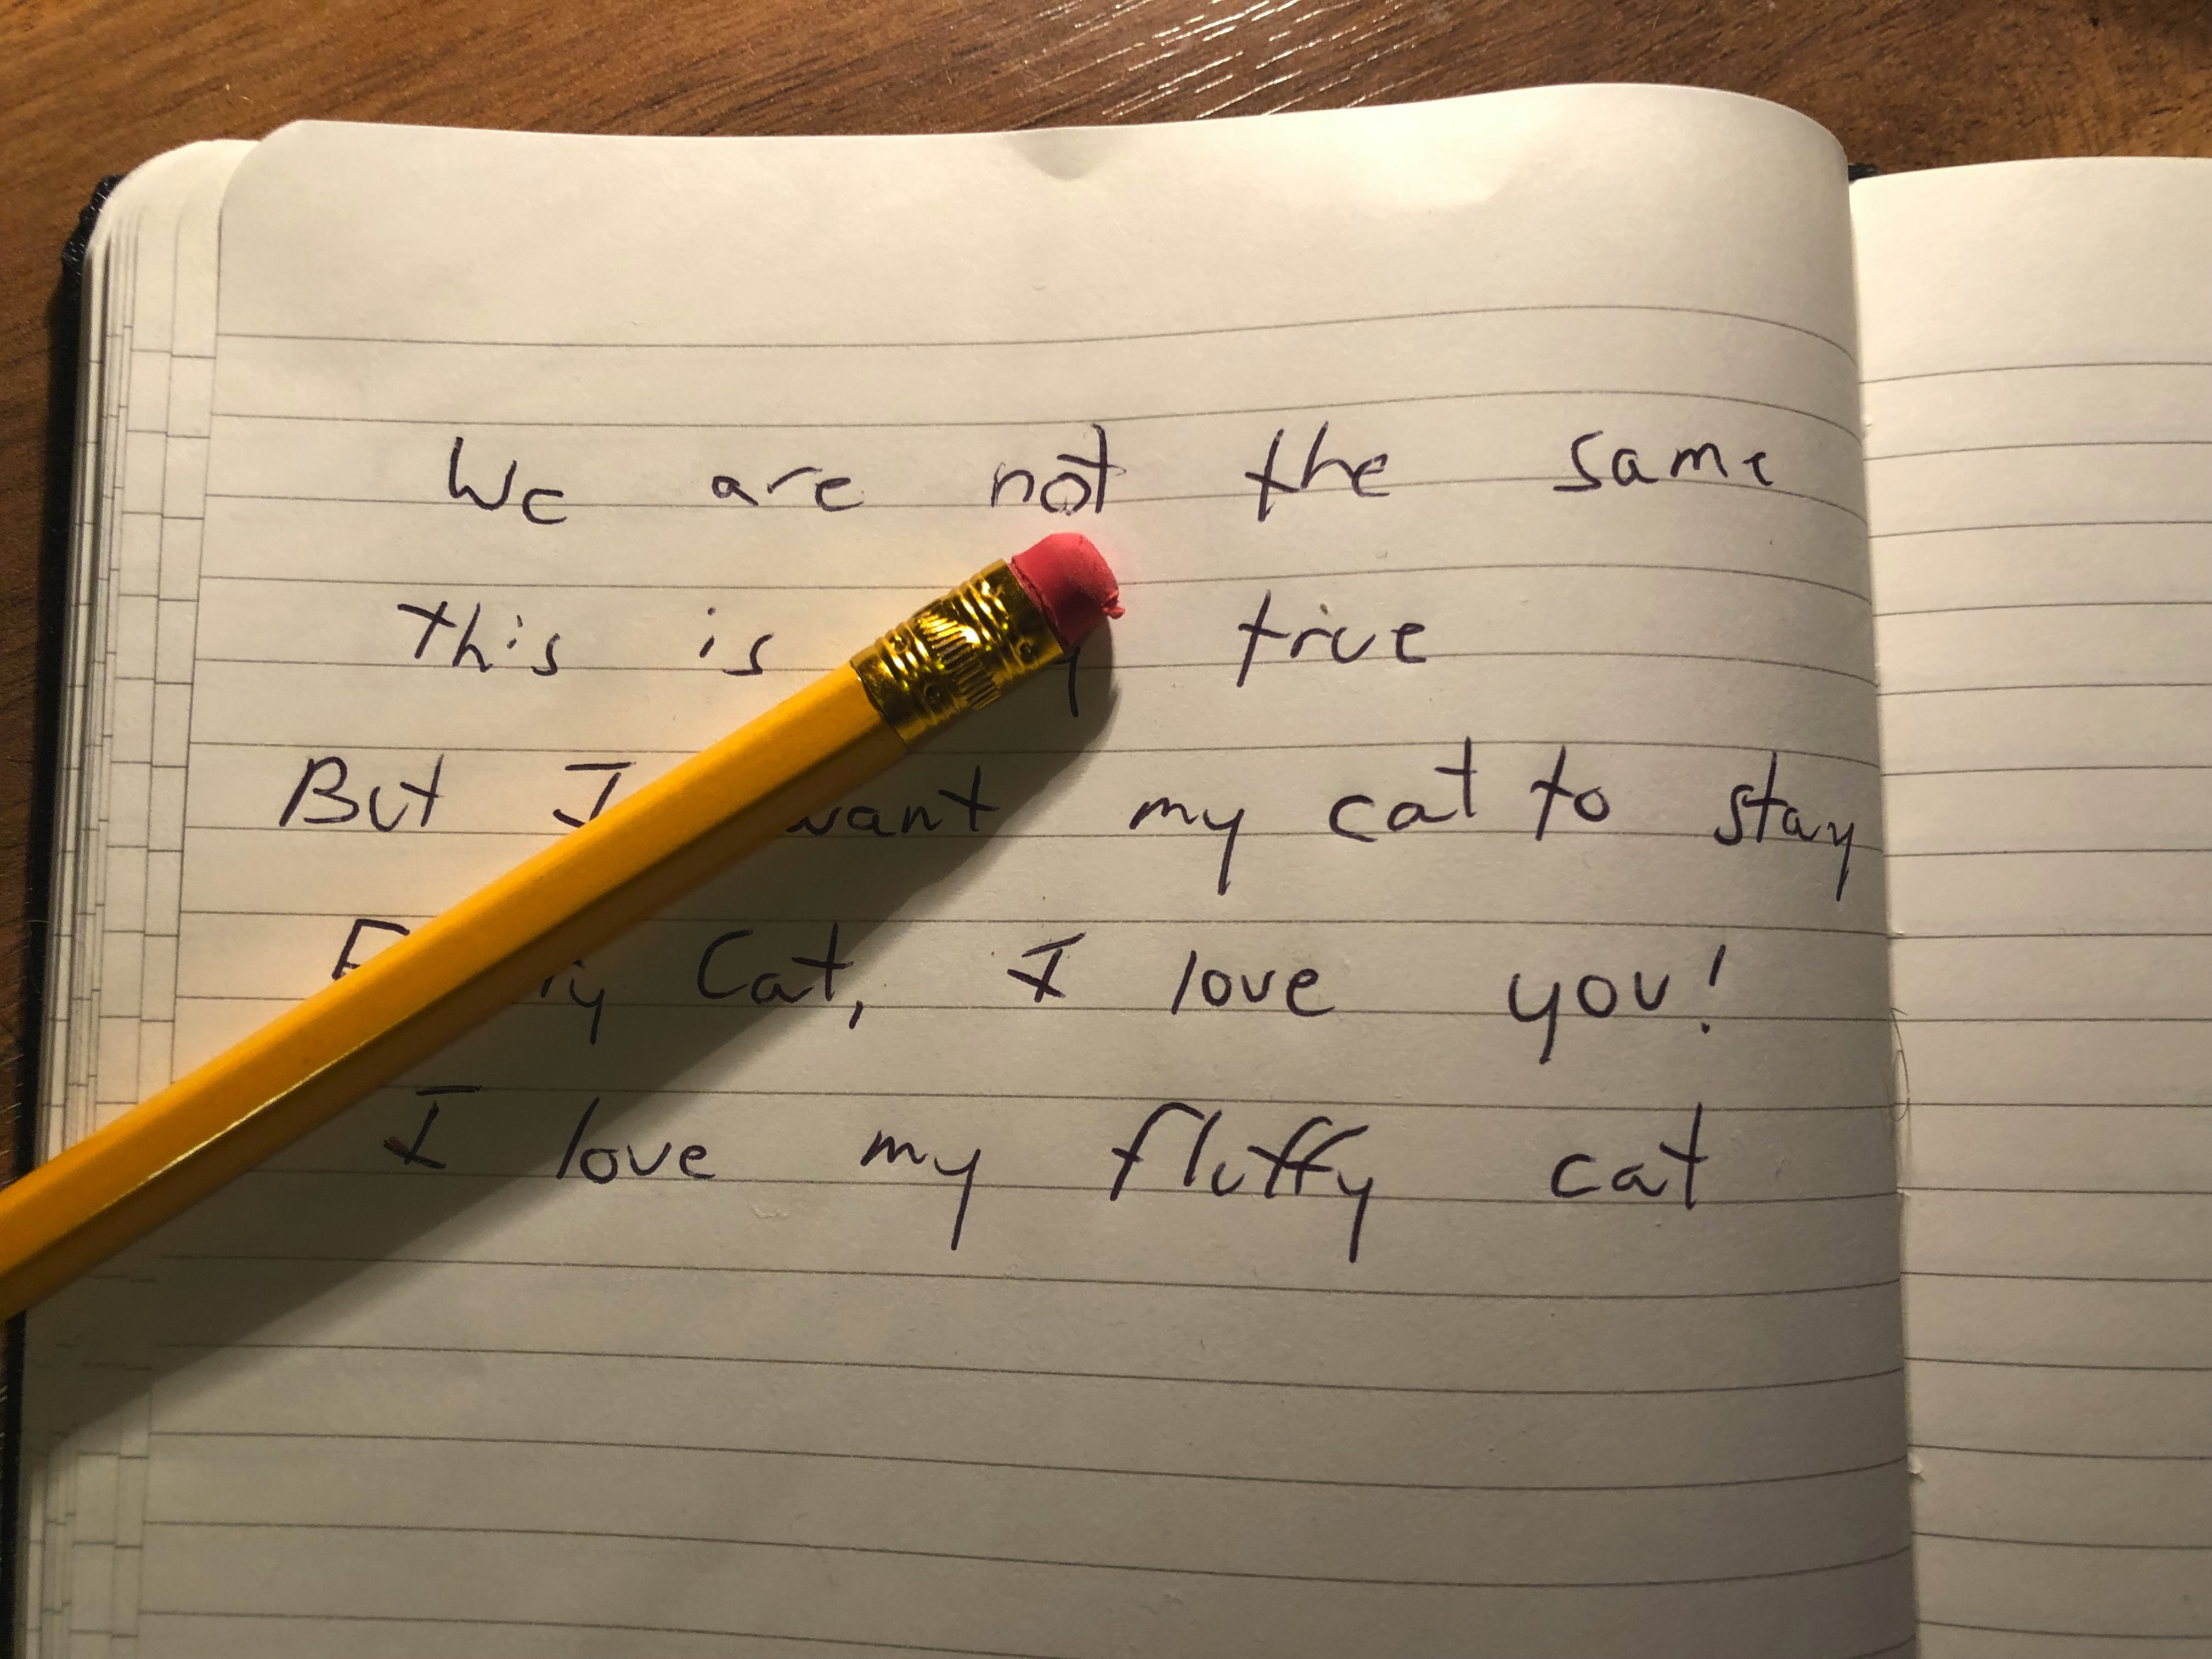 We are not the same
this is true
But I want my cat to stay
Cat, I love you!
I love my fluffy cat